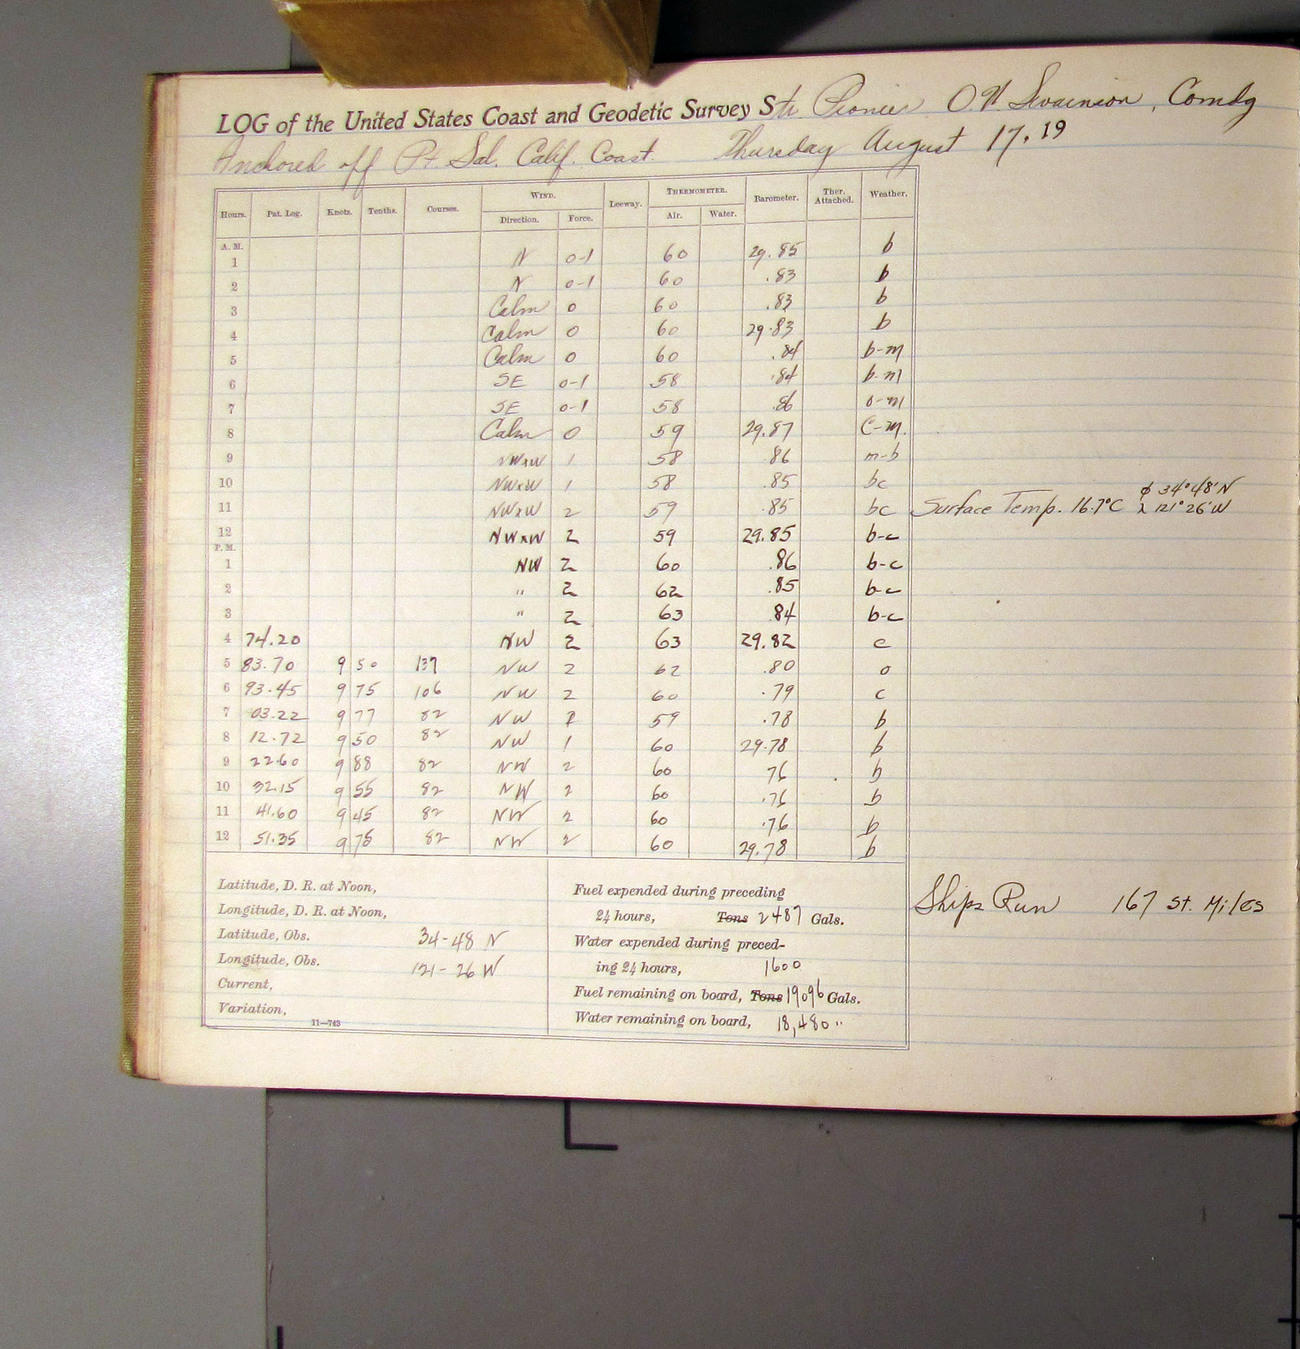 LOG of the United States Coast and Geodetic Survey Str Pioneer O W Swainson, Comdg
Anchored off Pt. Sal. Calif. Coast. Thursday August 17, 19
Hours. Pat. Log. Knots. Tenths. Courses. WIND. Direction. Force. Leeway. THERMOMETER. Air. Water. Barometer. Ther. Attached. Weather.
A. M.
1 N 0-1 60 29.85 b
2 N 0-1 60 .83 b
3 Calm 0 60 .83 b
4 Calm 0 60 29.83 b
5 Calm 0 60 .84 b-m
6 SE 0-1 58 .84 b-m
7 SE 0-1 58 .86 o-m
8 Calm 0 59 29.87 c-m.
9 NWxW 1 58 .86 m-b
10 NWxW 1 58 .85 bc
11 NWxW 2 59 .85 bc Surface Temp. 16.7°C ϕ 34°48'N λ 121°26'W
12 NWxW 2 59 29.85 b-c
P. M.
1 NW 2 60 .86 b-c
2 " 2 62 .85 b-c
3 " 2 63 .84 b-c
4 74.20 NW 2 63 29.82 c
5 83.70 9 50 137 NW 2 62 .80 o
6 93.45 9 75 106 NW 2 60 .79 c
7 03.22 9 77 82 NW 59 .78 b
8 12.72 9 50 82 NW 1 60 29.78 b
9 22.60 9 88 82 NW 2 60 76 b
10 32.15 9 55 82 NW 2 60 .76 b
11 41.60 9 45 82 NW 2 60 .76 b
12 51.35 9 75 82 NW 2 60 29.78 b
Latitude, D. R. at Noon,
Longitude, D. R. at Noon,
Latitude, Obs. 34-48 N
Longitude, Obs. 121-26 W
Current,
Variation,
11—743
Fuel expended during preceding
24 hours, Tons 2487 Gals.
Water expended during preced-
ing 24 hours, 1600
Fuel remaining on board, Tons 19096 Gals.
Water remaining on board, 18,480 "
Ships Run 167 St. Miles